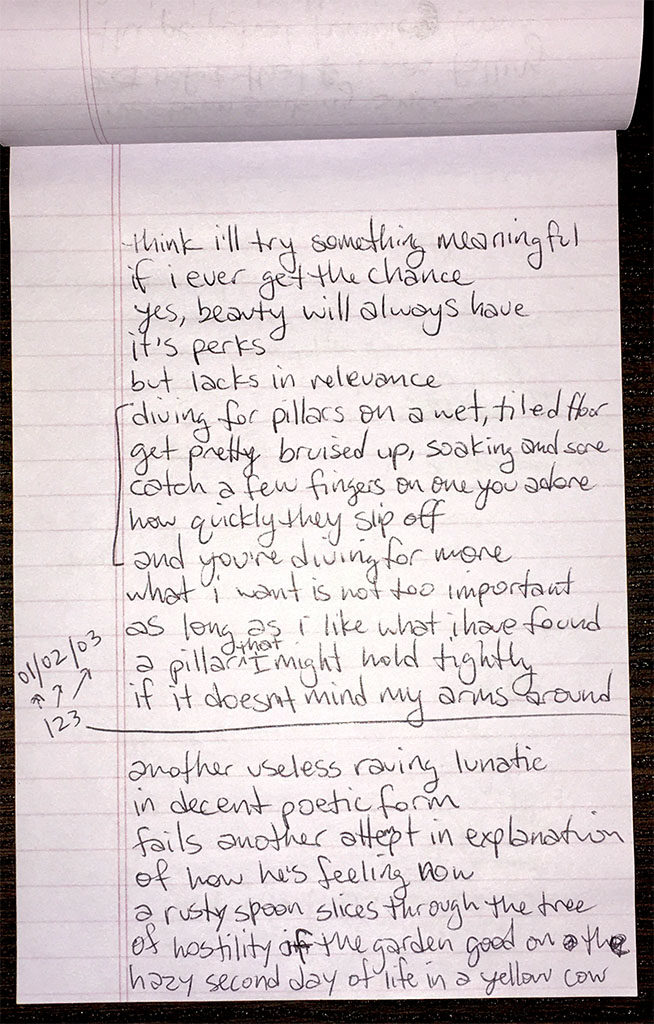 think i'll try something meaningful
if i ever get the chance
yes, beauty will always have
it's perks
but lacks in relevance
diving for pillars on a wet, tiled floor
get pretty bruised up, soaking and sore
catch a few fingers on one you adore
how quickly they slip off
and you're diving for more
what i want is not too important
as long as i like what i have found
a pillar that I might hold tightly
if it doesn't mind my arms around
01/02/03
123
another useless raving lunatic
in decent poetic form
fails another attept in explanation
of how he's feeling now
a rusty spoon slices through the tree
of hostility the garden good on the
hazy second day of life in a yellow cow